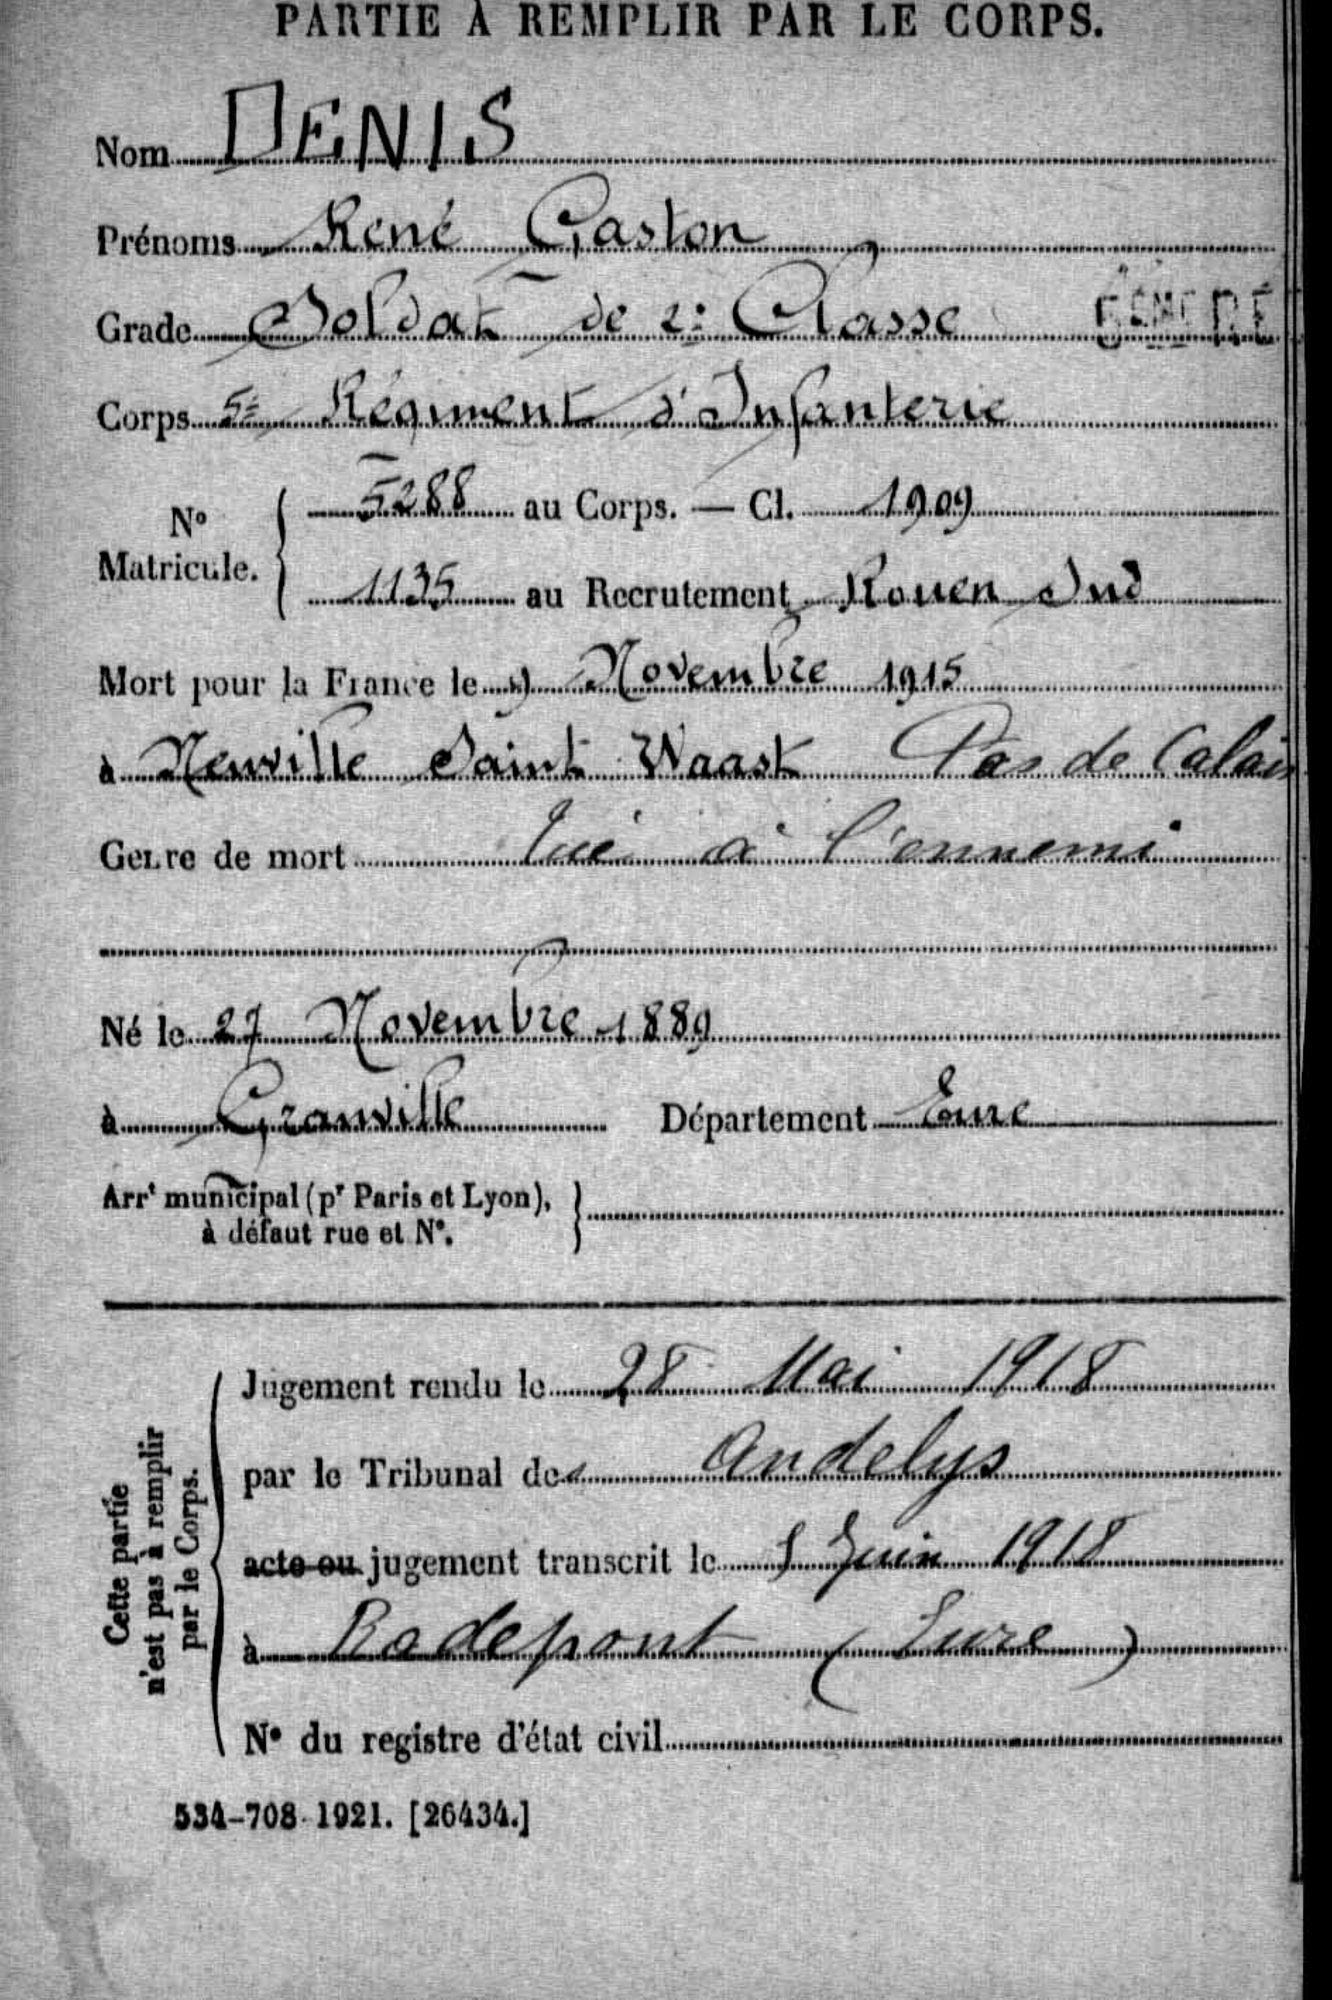 PARTIE À REMPLIR PAR LE CORPS.
Nom DENIS
Prénoms René Gaston
Grade Soldat de 2e Classe
Corps 5e Régiment d'Infanterie
No Matricule. { 5288 au Corps. — Cl. 1909
1135 au Recrutement Rouen Sud
Mort pour la France le Novembre 1915
à Neuville Saint Waast Pas de Calais
Genre de mort Tué à l'ennemi
Né le 27 Novembre 1889
à Granville Département Eure
Arrt municipal (pr Paris et Lyon),
à défaut rue et No. }
Cette partie
n'est pas à remplir
par le Corps.
Jugement rendu le 28 Mai 1918
par le Tribunal des Andelys
acte ou jugement transcrit le Juin 1918
à Radepont (Eure)
No du registre d'état civil
534-708-1921. [26434.]